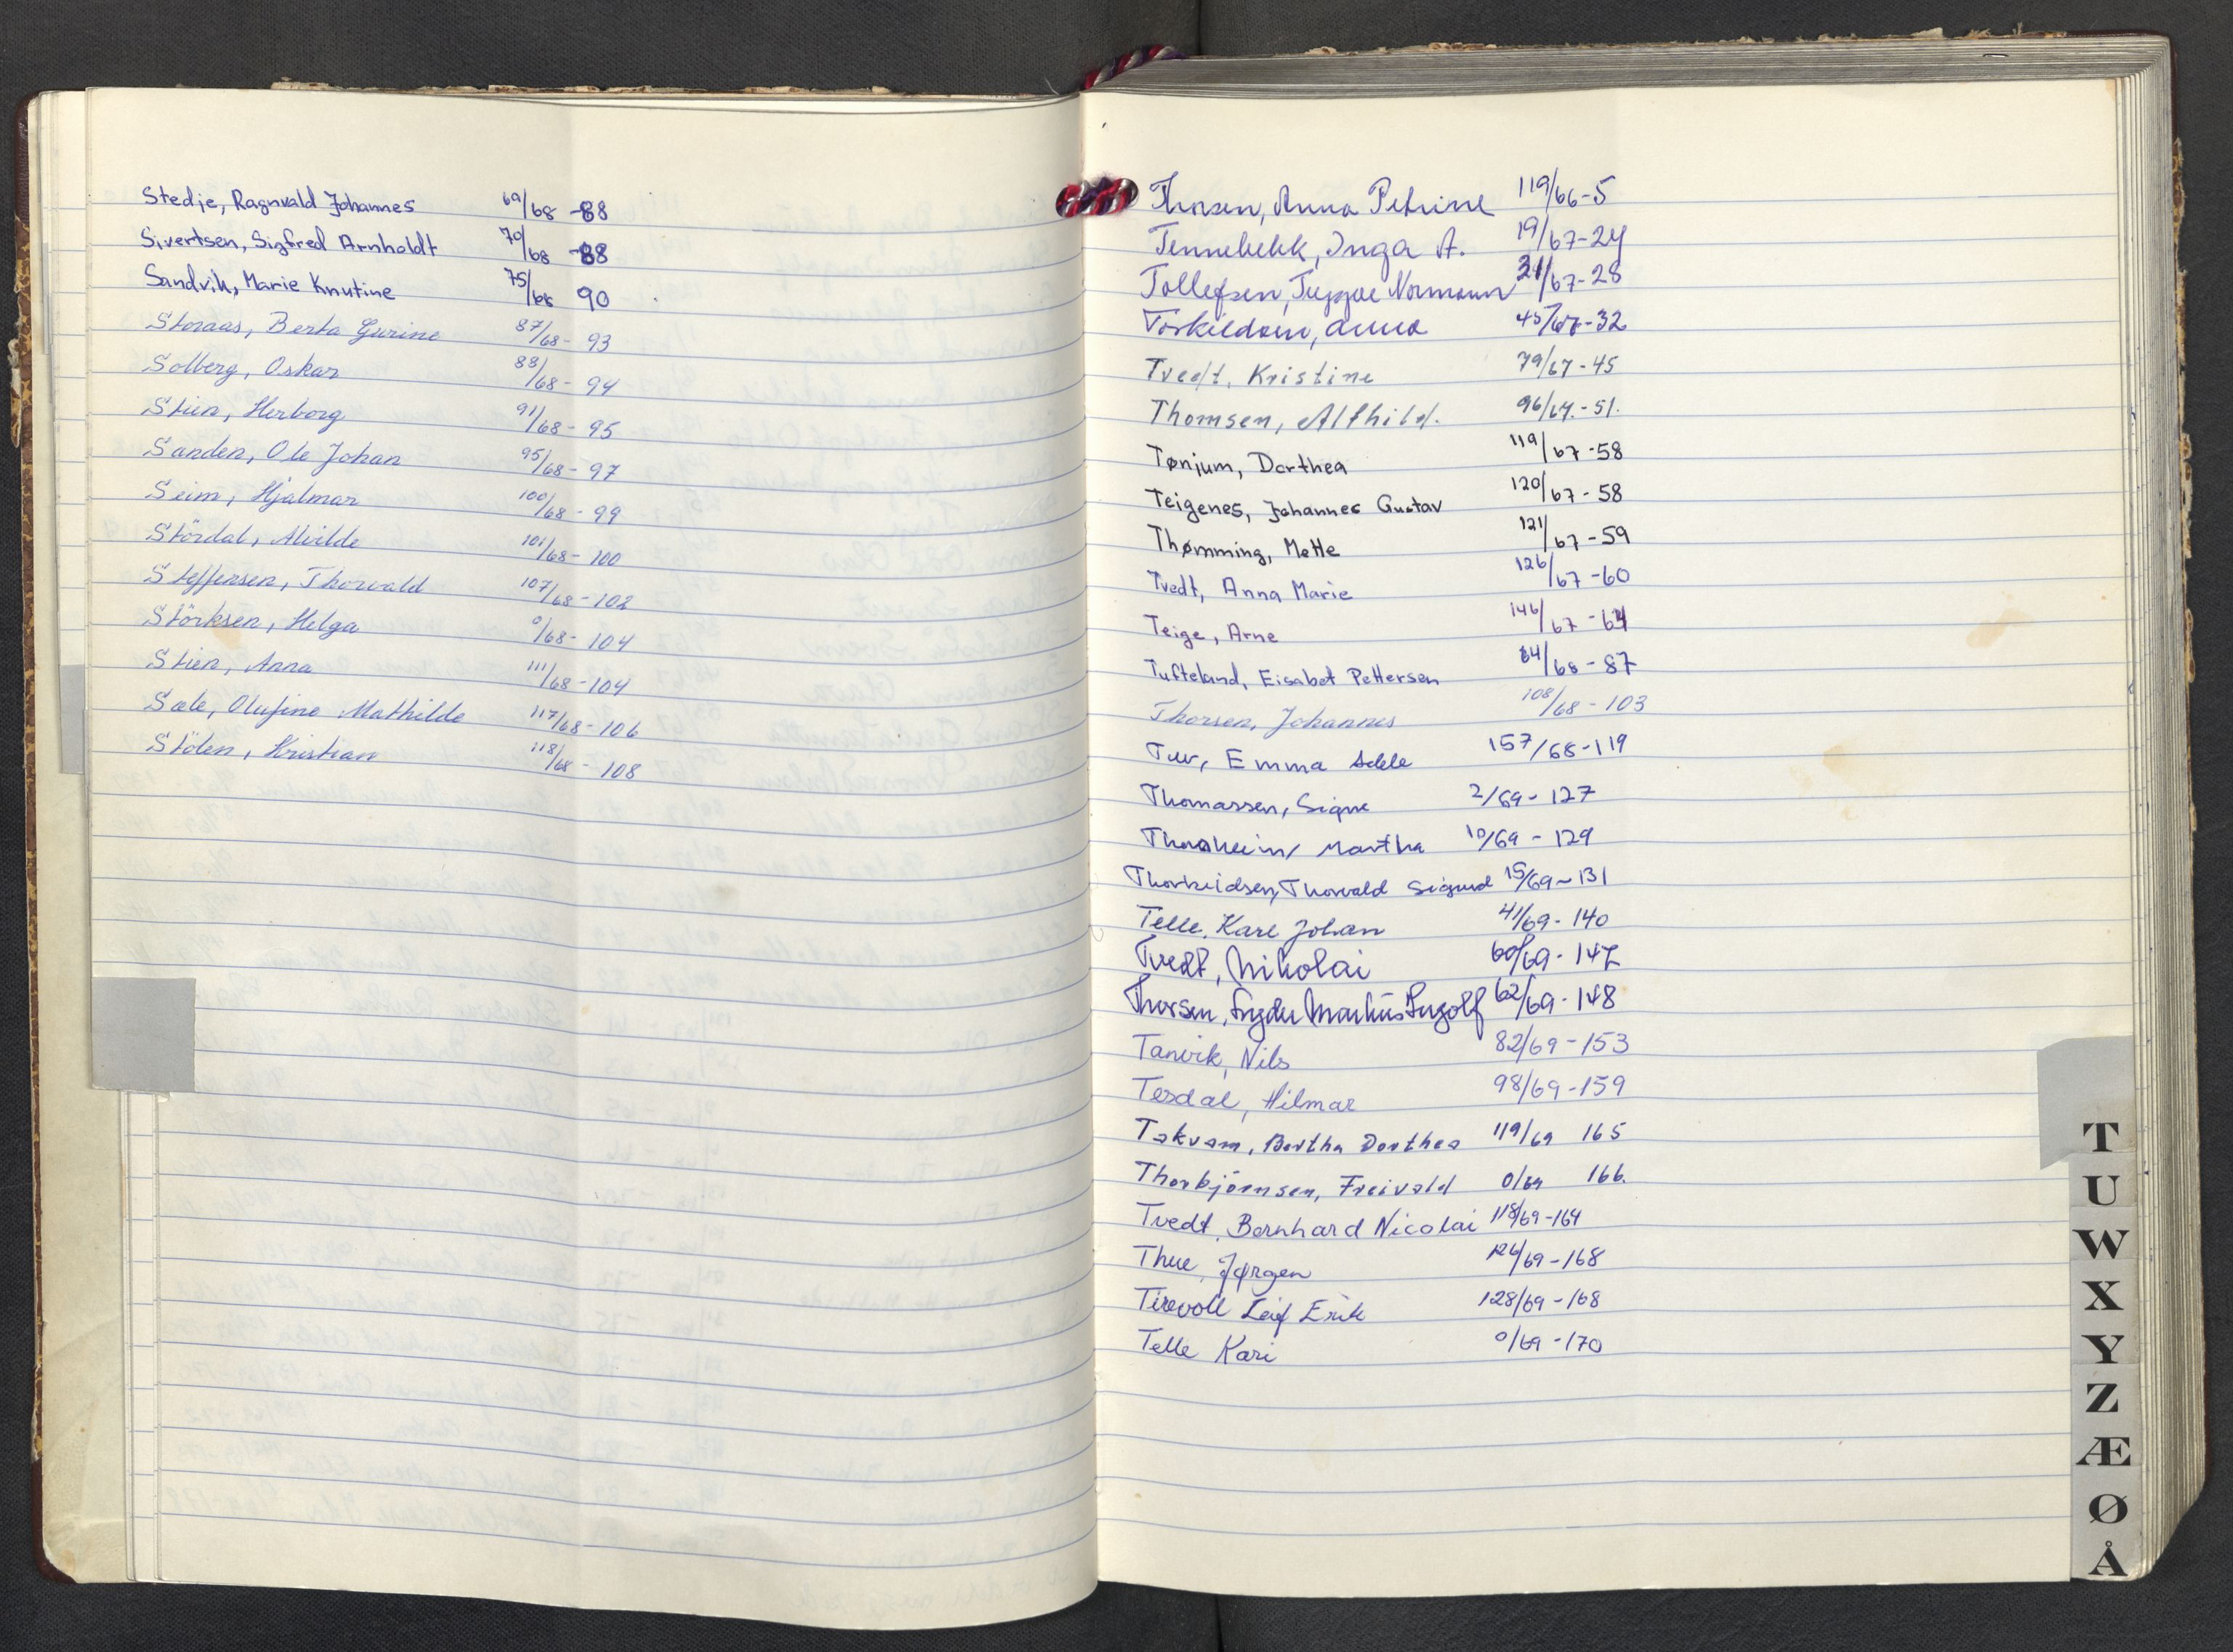 Stedje, Ragnvald Johannes 69/68 - 88
Sivertsen, Sigfred Arnholdt 70/68 - 88
Sandvik, Marie Knutine 75/68 90
Storaas, Berta Gurine 87/68 - 93
Solberg, Oskar 88/68 - 94
Stien, Herborg 91/68 - 95
Sanden, Ole Johan 95/68 - 97
Seim, Hjalmar 100/68 - 99
Stördal, Alvilde 101/68 - 100
Steffensen, Thorvald 107/68 - 102
Störksen, Helga 0/68 - 104
Stien, Anna 111/68 - 104
Sæle, Olufine Mathilde 117/68 - 106
Stölen, Kristian 118/68 - 108
Thorsen, Anna Petrine 119/66 - 5
Tennebekk, Inga A. 19/67 - 24
Tollefsen, Trygve Normann 31/67 - 28
Torkildsen, Anna 45/67 - 32
Tvedt, Kristine 79/67 - 45
Thomsen, Alfhild. 96/67. - 51.
Tønjum, Dorthea 119/67 - 58
Teigenes, Johannes Gustav 120/67 - 58
Thømming, Mette 121/67 - 59
Tvedt, Anna Marie 126/67 - 60
Teige, Arne 146/67 - 64
Tufteland, Eisabet Pettersen 64/68 - 87
Thorsen, Johannes 108/68 - 103
Tuv, Emma Adele 157/68 - 119
Thomassen, Signe 2/69 - 127
Thorsheim, Martha 10/69 - 129
Thorkildsen, Thorvald Sigurd 15/69 - 131
Telle, Karl Johan 41/69 - 140
Tvedt, Nikolai 60/69 - 147
Thorsen, Markus Ingolf 62/69 - 148
Tanvik, Nils 82/69 - 153
Tesdal, Hilmar 98/69 - 159
Takvam, Bertha Dorthea 119/69 165
Thorbjörnsen, Freivald 0/69 166.
Tvedt, Bernhard Nicolai 118/69 - 164
Thue, Jørgen 126/69 - 168
Tirevoll Leif Erik 128/69 - 168
Telle Kari 0/69 - 170
T
U
W
X
Y
Z
Æ
Ø
Å